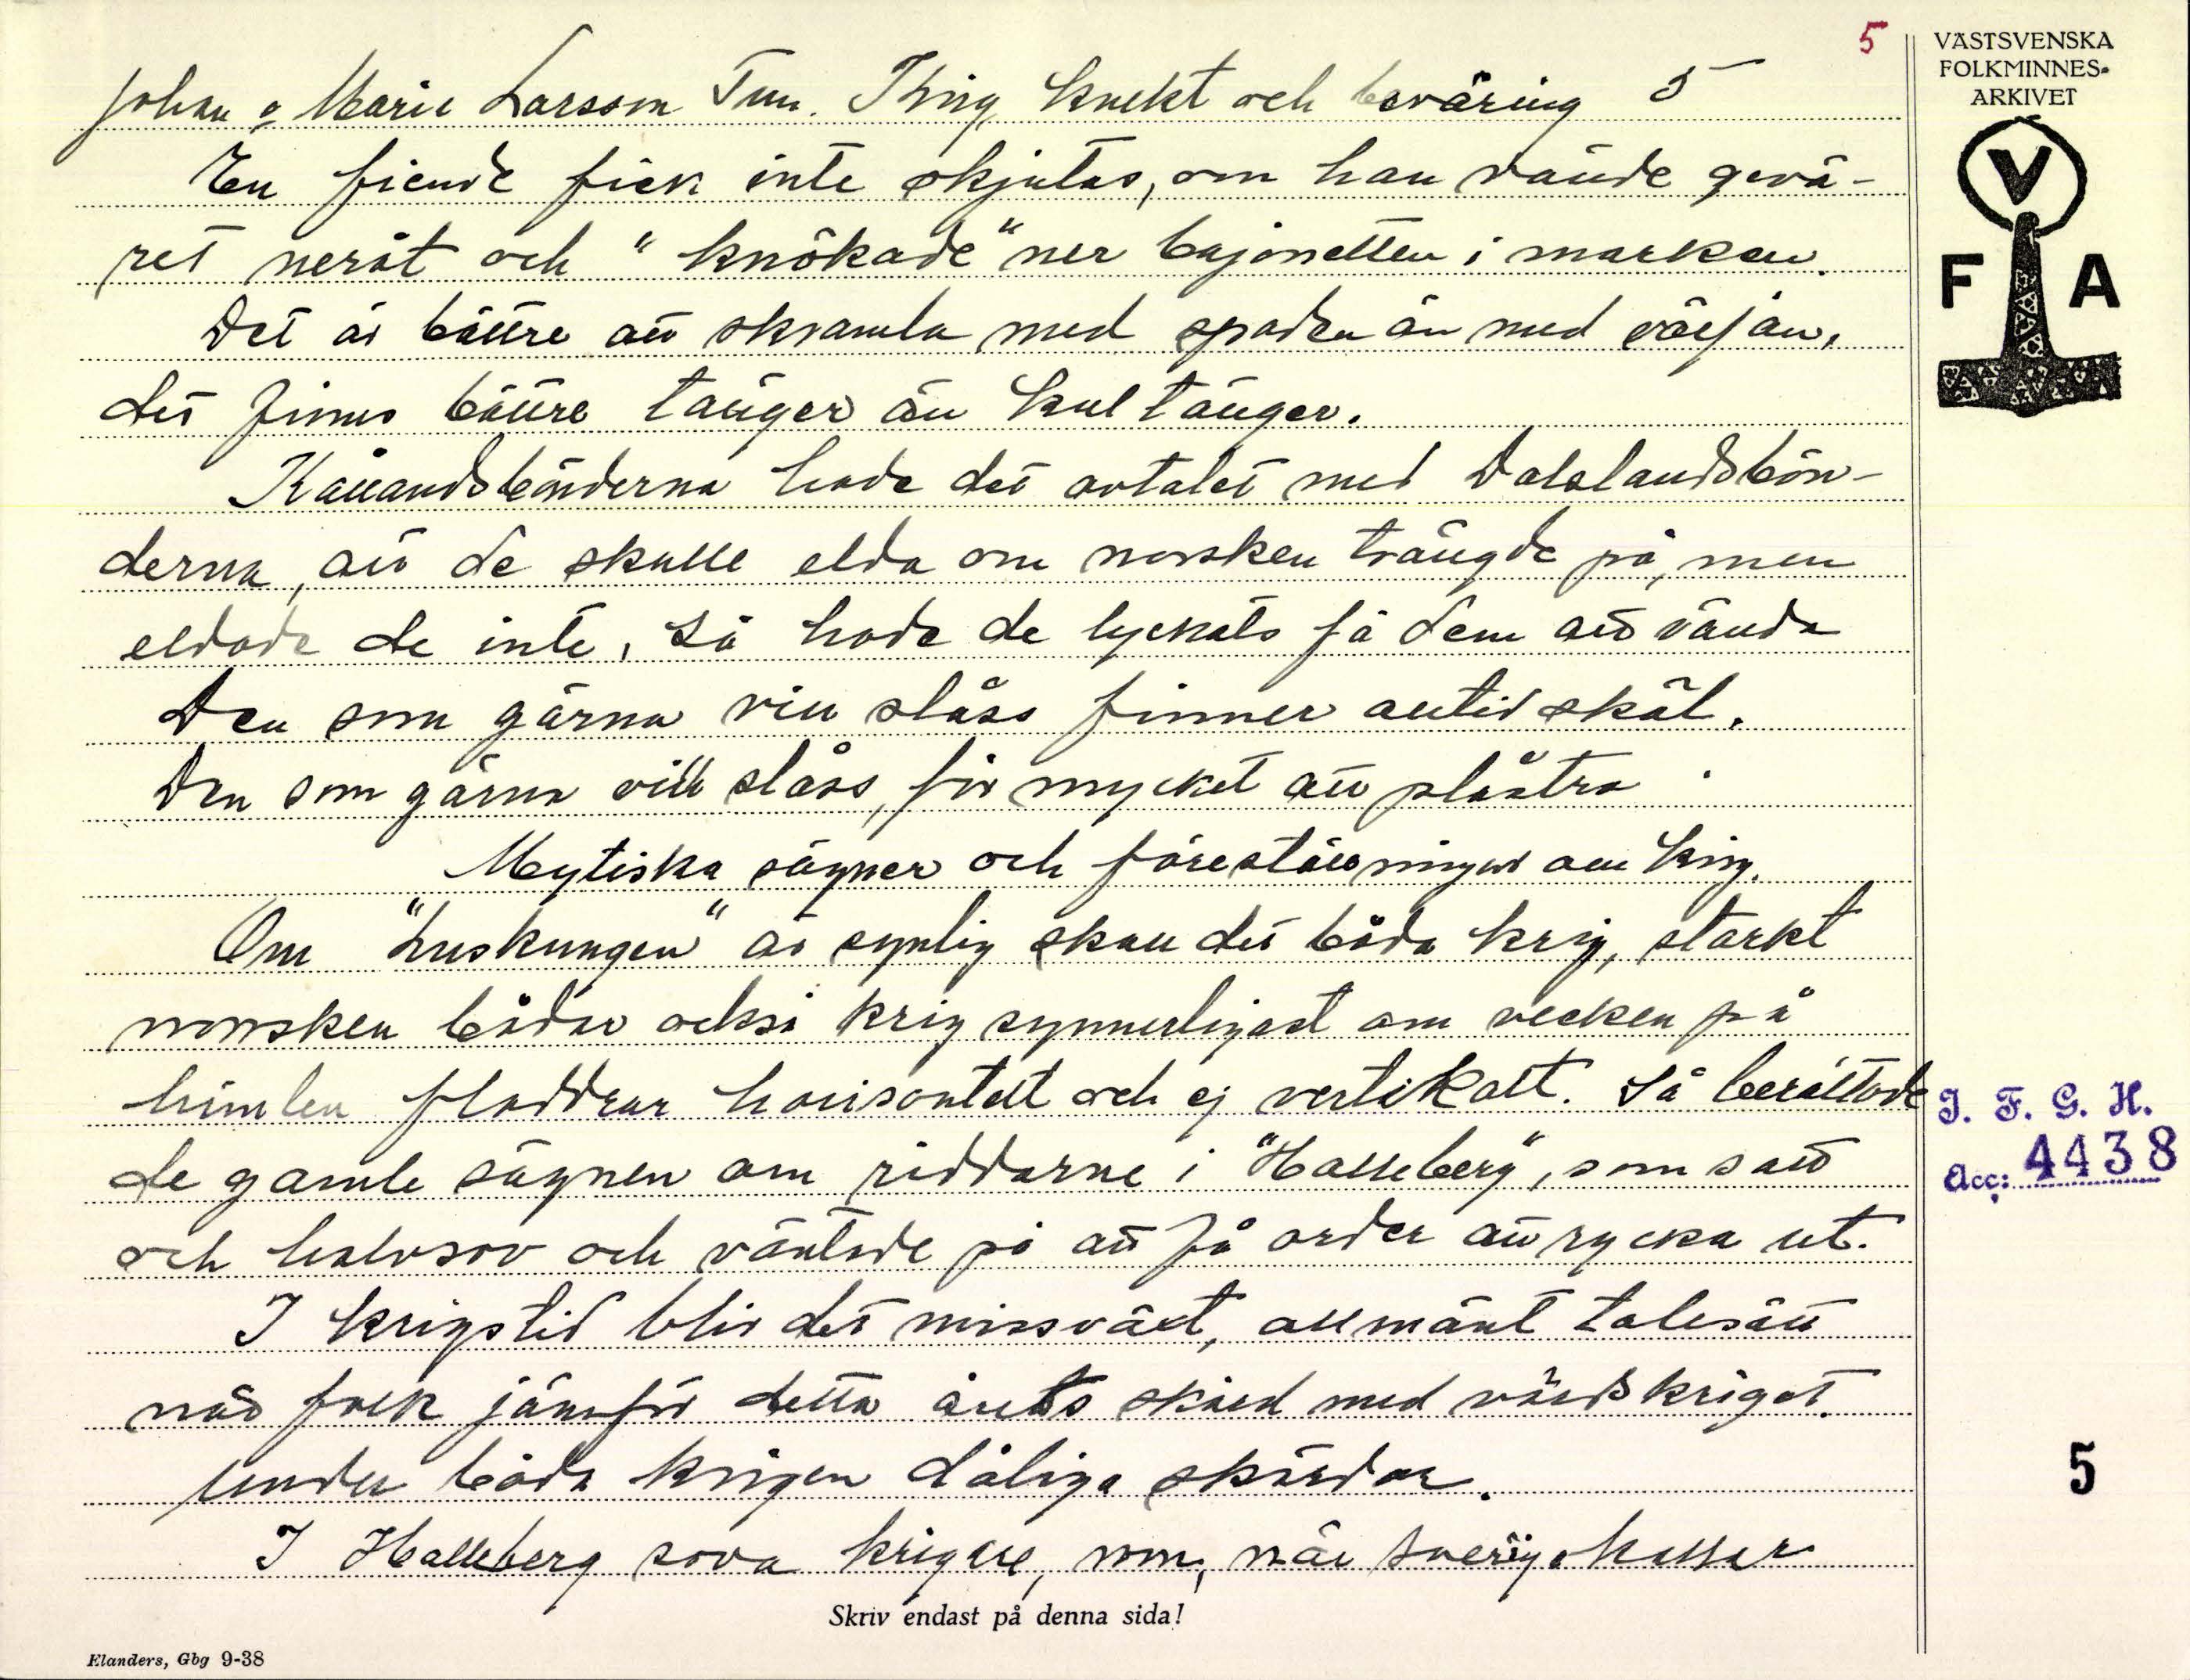 5
VÄSTSVENSKA
FOLKMINNES-
ARKIVET
V
F A
Johan o Marie Larsson Tun. Krig, knekt och beväring 5
En fiende fick inte skjutas, om han vände gevä-
ret neråt och "knökade" ner bajonetten i marken.
Det är bättre att skramla med spaden än med värjan,
det finns bättre tänger än kultänger.
Kållandsbönderna hade det avtalet med Dalslandsbön-
derna, att de skulle elda om norsken trängde på, men
eldade de inte, så hade de lyckats få dem att vända
Den som gärna vill slåss finner alltid skäl.
Den som gärna vill slåss, får mycket att plåstra
Mytiska sägner och föreställningar om krig.
Om "Luskungen" är synlig skall det båda krig, starkt
norrsken bådar också krig synnerligast om vecken på
himlen fladdrar horisontellt och ej vertikalt. Så berättade
de gamle sägnen om riddarne i "Halleberg", som satt
och halvsov och väntade på att få order att rycka ut.
I krigstid blir det missväxt, allmänt talesätt
när folk jämför detta årets skörd med världskriget.
Under båda krigen dåliga skördar.
I Halleberg sova krigare, som, när Sverige
I. F. G. H.
Acc: 4438
5
Skriv endast på denna sida!
Elanders, Gbg 9-38